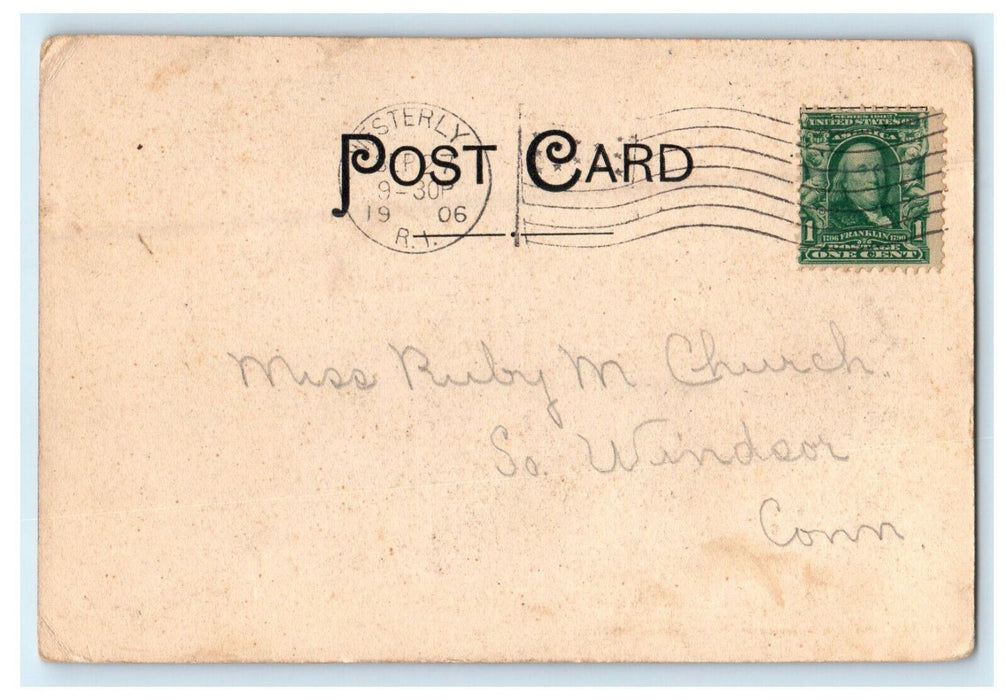 WESTERLY
9-30P
19 06
R.I.
POST CARD
SERIES 1902
UNITED STATES OF
AMERICA
1 1
1706 FRANKLIN 1790
POSTAGE
ONE CENT
Miss Ruby M. Church.
So. Windsor
Conn.